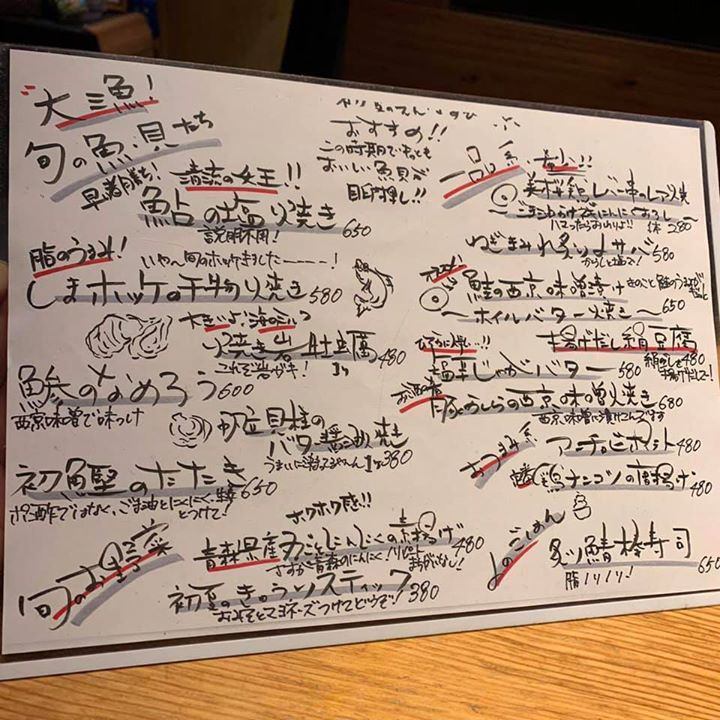 大三魚!
旬の魚・貝たち
おすすめ!!
この時期でもっとも
おいしい魚貝が
目白押し!!
早い者勝ち!
清流の女王!!
鮎の塩焼き 650
説明不用!
脂のうまみ!
いやん旬のホッケきましたーーーー!
しまホッケの干物焼き 580
大きいよ!海のミルク
焼き岩牡蠣 480
これぞ岩がき! 1ヶ
鯵のなめろう 600
西京味噌で味つけ
帆立貝柱の
バター醤油焼き
380
初鰹のたたき 650
ポン酢ではなく、ごま油とにんにく生姜
とつけて!
旬のお野菜
ホクホク感!!
青森県産丸ごとにんにくの素揚げ 480
さすが青森のにんにく!リピート
まちがいなし!
初夏のきゅうりスティック 380
おみそとマヨネーズつけてどうぞ!
一品系
レバー串のレア焼
ハマったらおかわりよ!! 1本 280
ねぎまみれ炙りサバ 580
からしと塩で!
鮭の西京味噌漬け きのこと鮭のうまみ
〜ホイルバター焼き〜 650
揚げだし絹豆腐 480
塩辛じゃがバター 580
豚の西京味噌焼き 680
西京味噌に漬けこんでます
おつまみ系
アンチョビポテト 480
鶏ナンコツの唐揚げ 480
〆のごはん
炙り鯖棒寿司 650
脂ノリノリ!